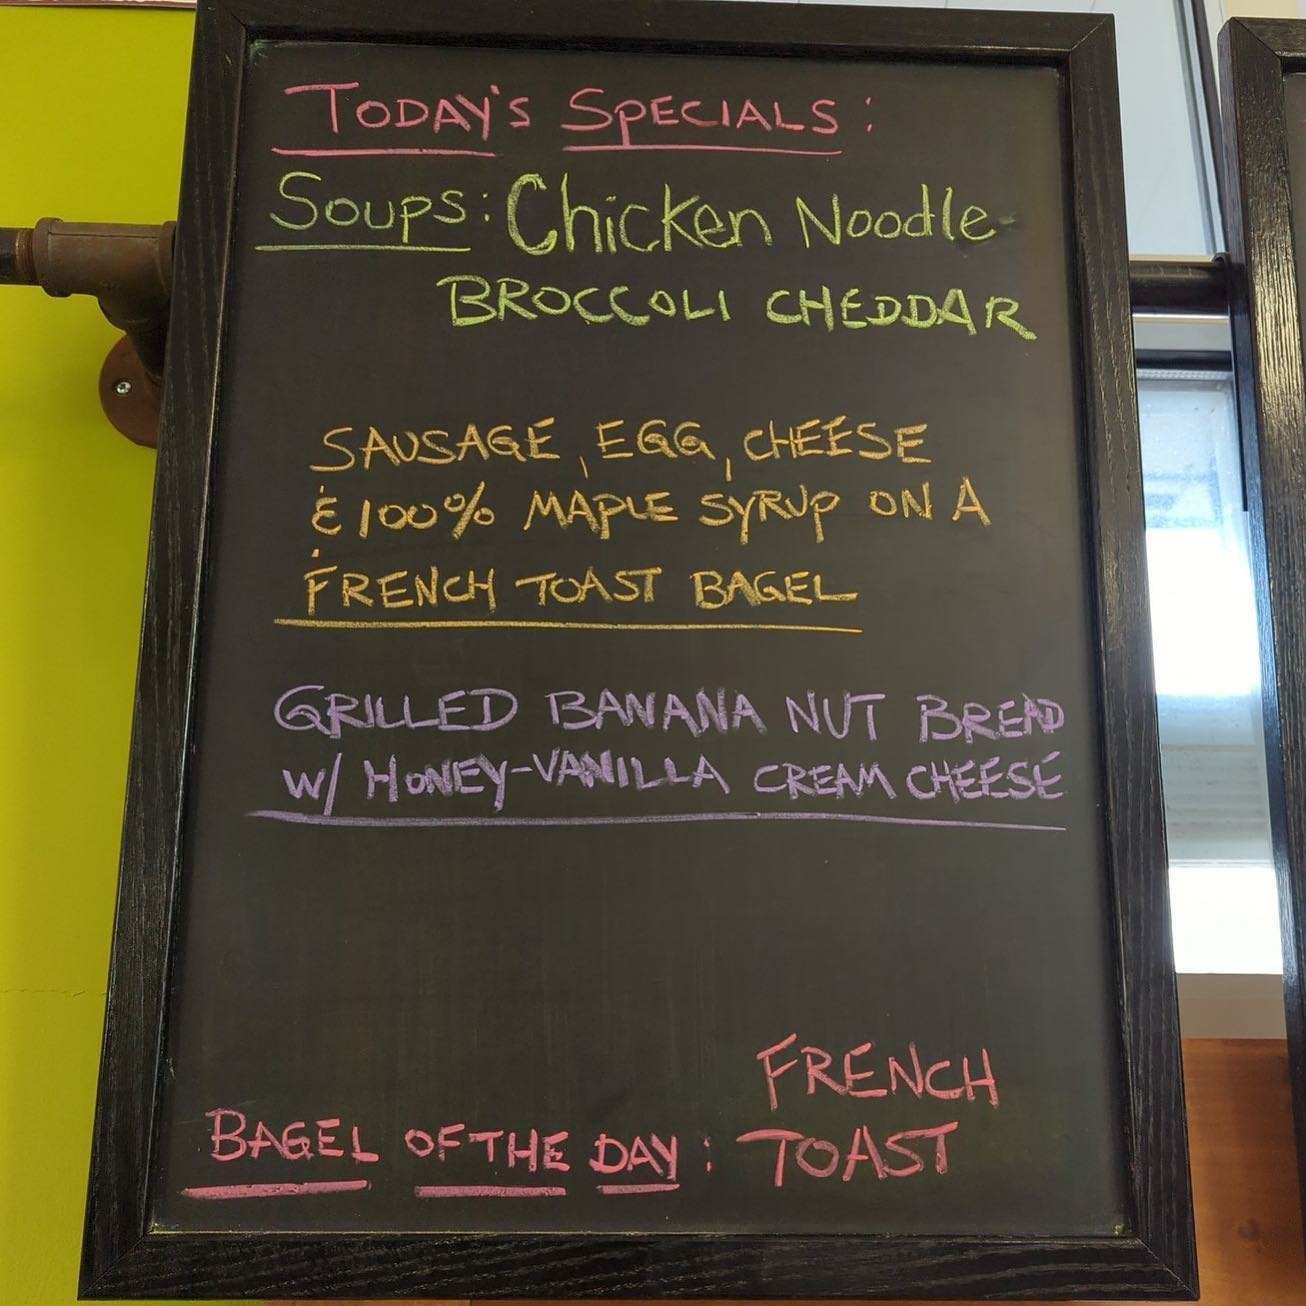 TODAY'S SPECIALS:
SOUPS: Chicken Noodle
BROCCOLI CHEDDAR
SAUSAGE, EGG, CHEESE
& 100% MAPLE SYRUP ON A
FRENCH TOAST BAGEL
GRILLED BANANA NUT BREAD
W/ HONEY-VANILLA CREAM CHEESE
BAGEL OF THE DAY: FRENCH
TOAST